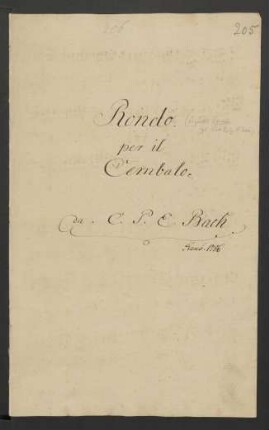 205
Rondo.
per il
Cembalo.
da. C. P. E. Bach